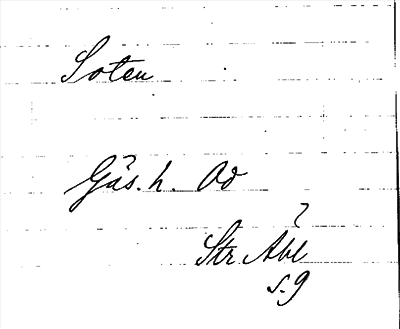 Soten
Gäs. h. Od
?
Str Abl
s. 9